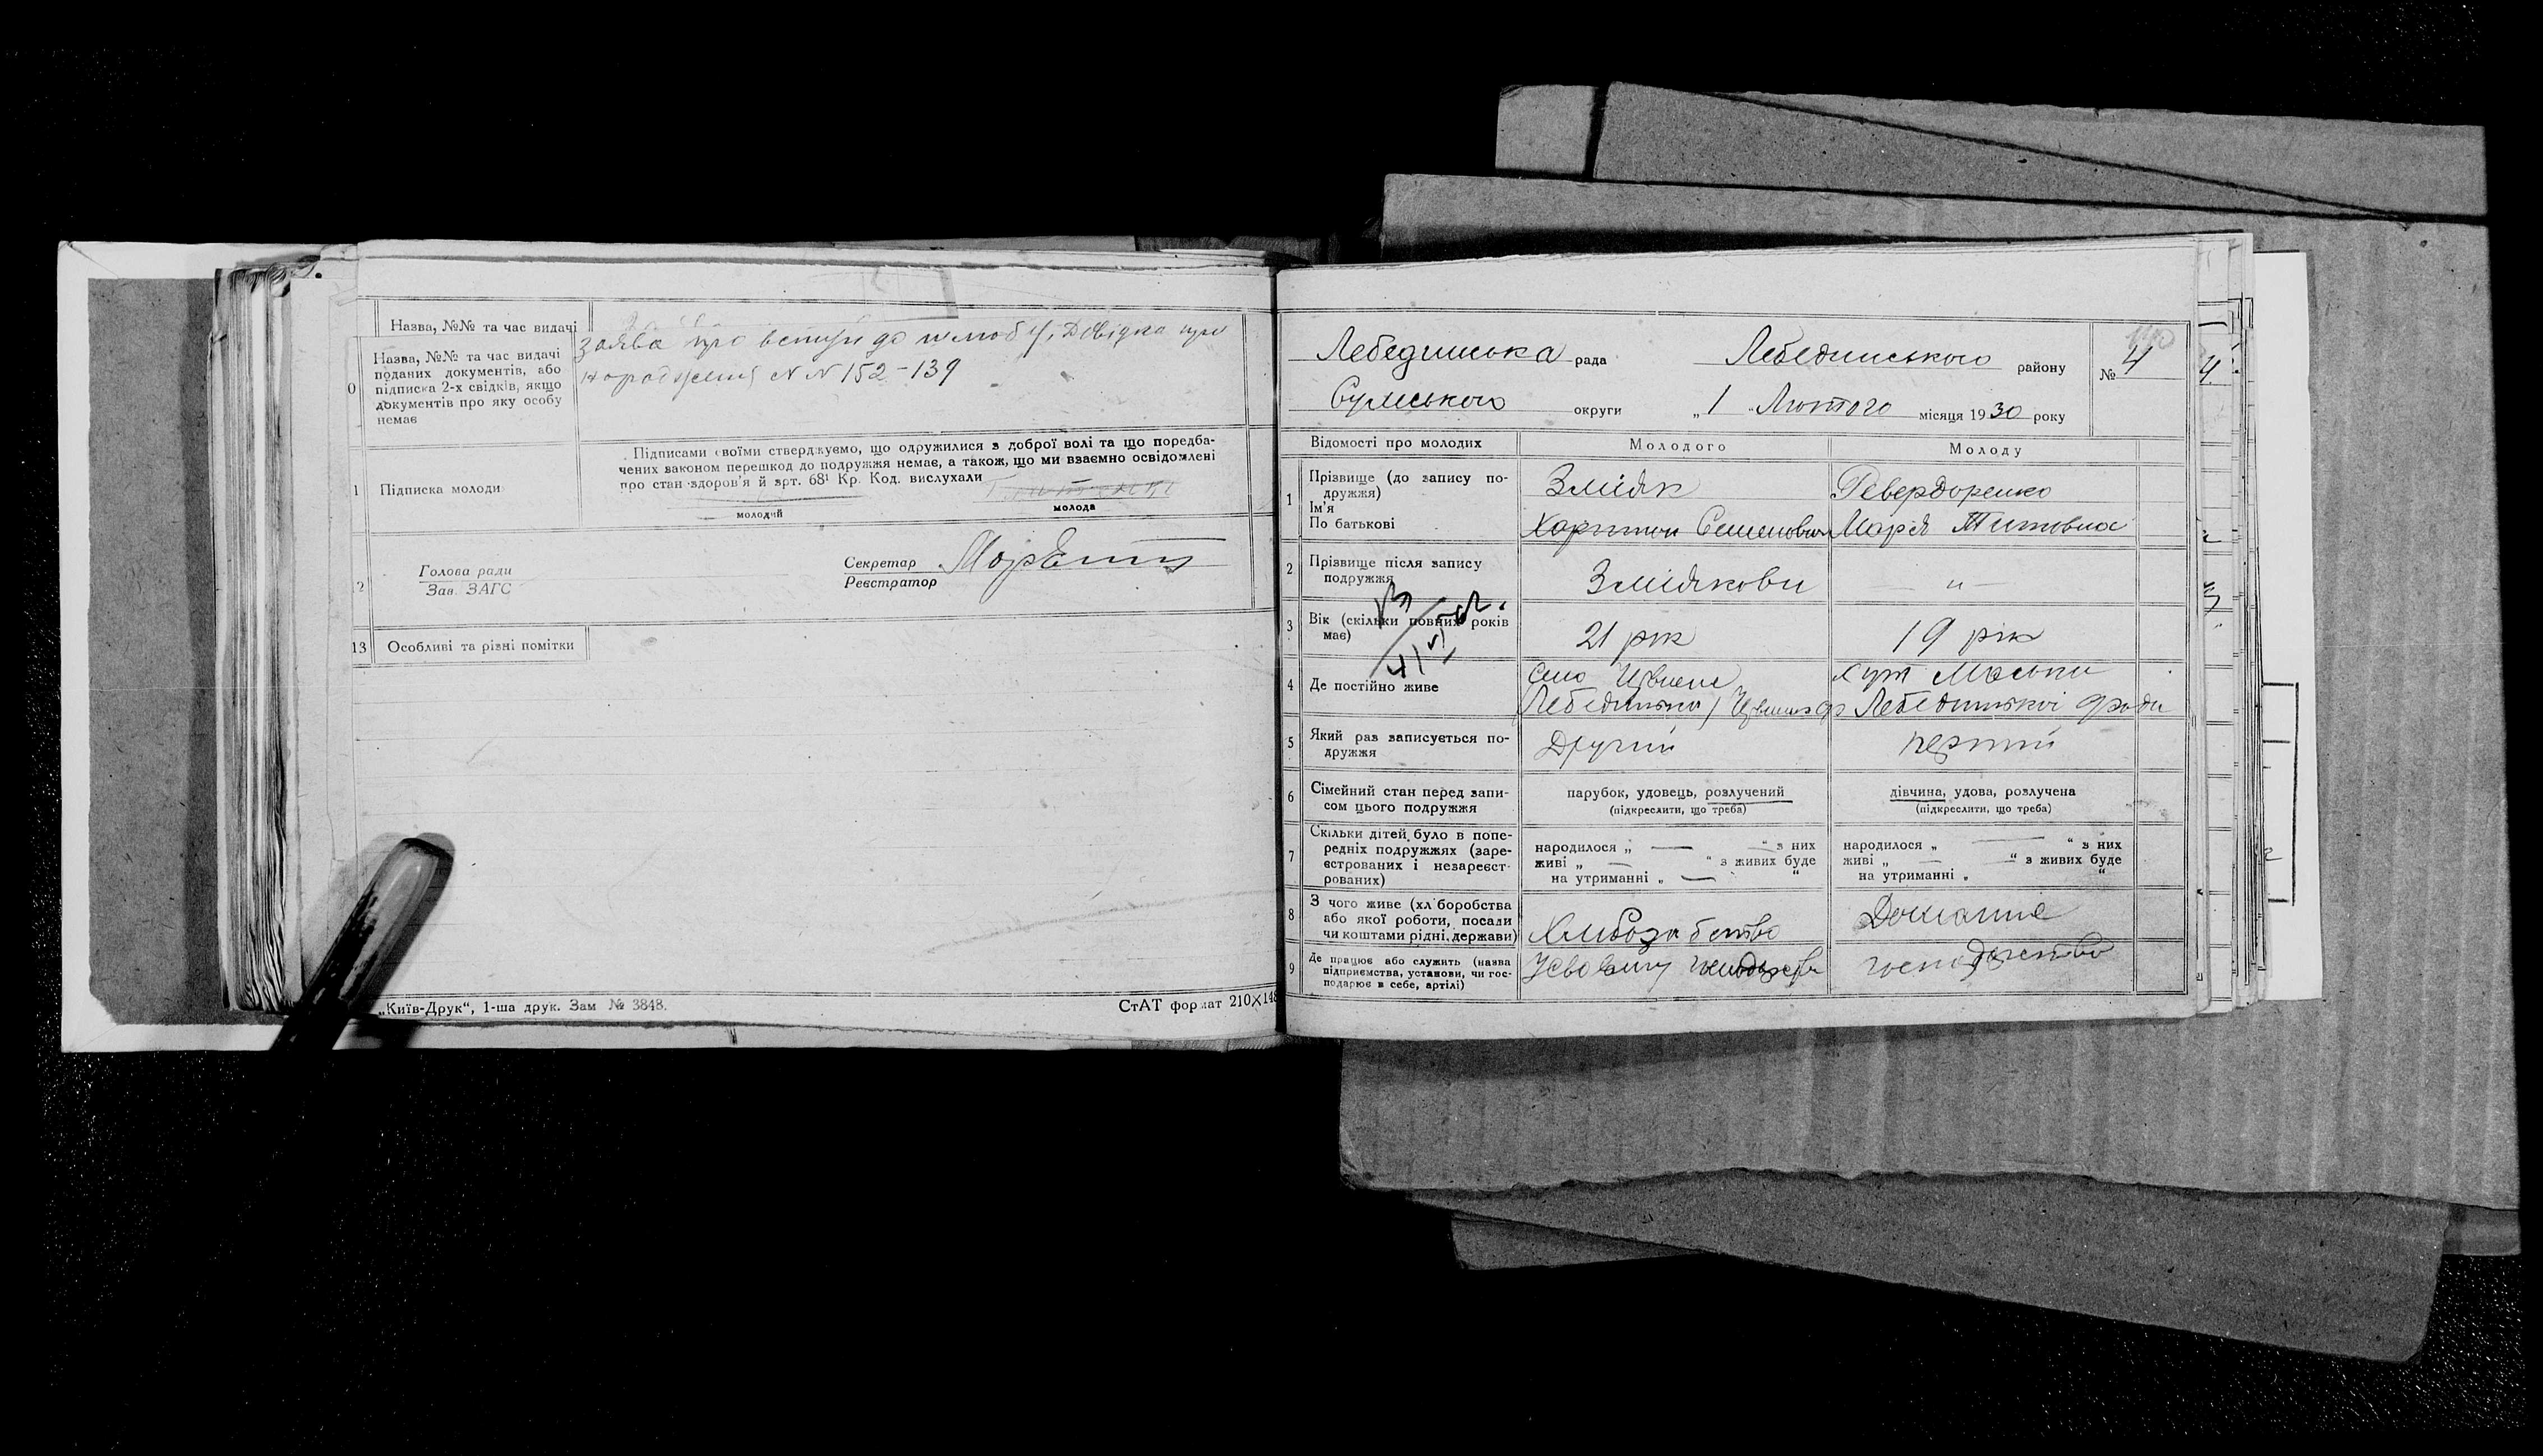 Назва, №№ та час видачі
0
Назва, №№ та час видачі
поданих документів, або
підписка 2-х свідків, якщо
документів про яку особу
немає
заява про вступ до шлюбу, Довідка про
народження N N 152-139
1
Підписка молоди
Підписами своїми стверджуємо, що одружилися з доброї волі та що поредба-
чених законом перешкод до подружжя немає, а також, що ми взаємно освідомлені
про стан здоров'я й арт. 68¹ Кр. Код. вислухали
молодий
молода
2
Голова ради
Зав. ЗАГС
Секретар
Реєстратор
13
Особливі та різні помітки
„Київ-Друк“, 1-ша друк. Зам № 3848.
СтАТ формат 210×148
Лебединська рада
Лебединського району
№ 4
Сумського округи
„1 “ Лютого місяця 1930 року
Відомості про молодих
Молодого
Молоду
1
Прізвище (до запису по-
дружжя)
Ім'я
По батькові
Зміяк
Харитон Семенович
Гевердоренко
Марія Титовна
2
Прізвище після запису
подружжя
Зміякови
— „ —
3
Вік (скільки повних років
має)
21 рік
19 рік
4
Де постійно живе
село
хут
Лебединської
5
Який раз записується по-
дружжя
Другий
перший
6
Сімейний стан перед запи-
сом цього подружжя
парубок, удовець, розлучений
(підкреслити, що треба)
дівчина, удова, розлучена
(підкреслити, що треба)
7
Скільки дітей було в попе-
редніх подружжях (заре-
єстрованих і незареєст-
рованих)
народилося „ — “ з них
живі „ — “ з живих буде
на утриманні „ — “
народилося „ — “ з них
живі „ — “ з живих буде
на утриманні „ “
8
З чого живе (хл боробства
або якої роботи, посади
чи коштами рідні, держави)
Домашнє
9
Де працює або служить (назва
підприємства, установи, чи гос-
подарює в себе, артілі)
У свойому господарстві
господарство
4